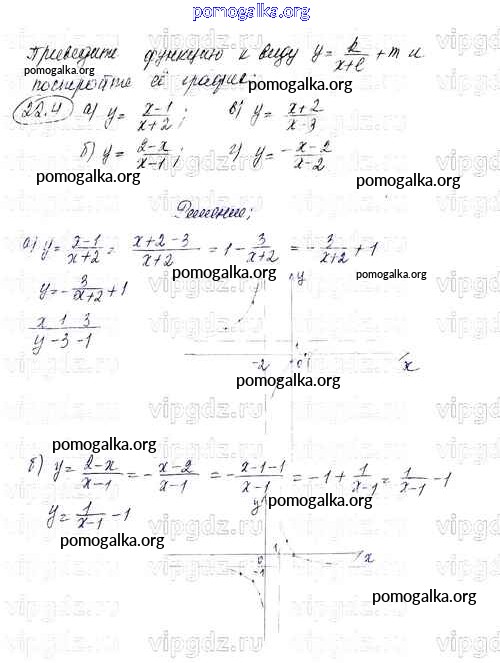 pomogalka.org
Приведите функцию к виду y = k/(x+l) + m и
pomogalka.org
постройте её график:
22.4 а) y = (x-1)/(x+2); в) y = (x+2)/(x-3)
б) y = (2-x)/(x-1); г) y = -(x-2)/(x-2)
pomogalka.org
pomogalka.org
Решение;
а) y = (x-1)/(x+2) = (x+2-3)/(x+2) = 1 - 3/(x+2) = -3/(x+2) + 1
pomogalka.org
pomogalka.org
y = -3/(x+2) + 1
y
x 1 3
y -3 -1
-2 0 1 x
pomogalka.org
pomogalka.org
б) y = (2-x)/(x-1) = -(x-2)/(x-1) = -(x-1-1)/(x-1) = -1 + 1/(x-1) = 1/(x-1) - 1
pomogalka.org
y = 1/(x-1) - 1
y
pomogalka.org
0 1 x
-1
pomogalka.org
vipgdz.ru
vipgdz.ru
vipgdz.ru